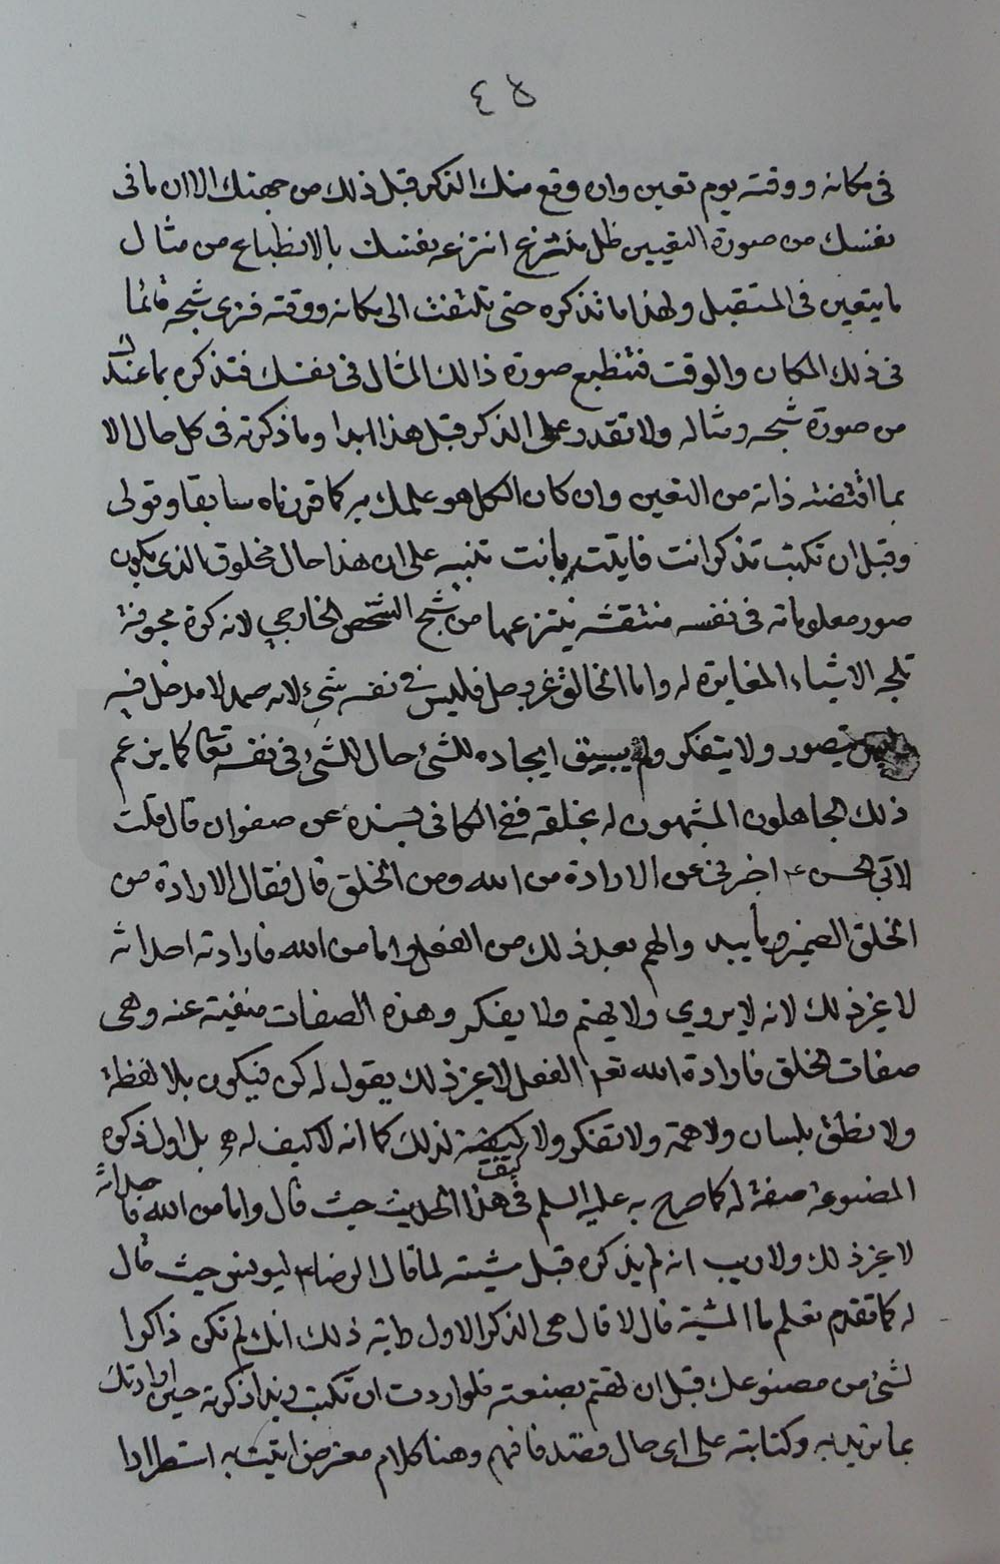 ٤٥
في مكانه ووقته يوم تعين وان وقع منك الذكر قبل ذلك من جهتك الا ان ما في
نفسك من صورة التعيين ظل منتزع انتزعه نفسك بالانطباع من مثال
ما يتعين في المستقبل ولهذا ما تذكره حتى تلتفت الى مكانه ووقته فترى شبحه قائما
في ذلك المكان والوقت فتنطبع صورة ذلك المثال في نفسك فتذكره بما عندك
من صورة شبحه ومثاله ولا تقدر على الذكر قبل هذا ابدا وما ذكرته في كل حال الا
بما اقتضته ذاته من التعين وان كان الكل هو علمك به كما قررناه سابقا وقولي
وقبل ان تكتب تذكر انت فاتيت بانت تنبيه على ان هذا حال مخلوق الذي يكون
صور معلوماته في نفسه منتقشة ينتزعها من شبح الشخص الخارجي لانه كرة مجوفة
تلجه الاشياء المغايرة له واما الخالق عز وجل فليس في نفسه شيء لانه صمد لا مدخل فيه
ليس يتصور ولا يتفكر ولم يسبق ايجاده للشيء حال للشيء في نفسه تعا كما يزعم
ذلك الجاهلون المشبهون له بخلقه ففي الكافي بسنده عن صفوان قال قلت
لابي الحسن ع اخبرني عن الارادة من الله ومن الخلق قال فقال الارادة من
الخلق الضمير وما يبد والهم بعد ذلك من الفعل واما من الله فارادته احداثه
لا غير ذلك لانه لا يروي ولا يهتم ولا يفكر وهذه الصفات منفية عنه وهي
صفات الخلق فارادة الله تع الفعل لا غير ذلك يقول له كن فيكون بلا لفظ
ولا نطق بلسان ولا همة ولا تفكر ولا كيف لذلك كما انه لا كيف له بل اول ذكره
المصنوعه صفة له كما صرح به عليه السلم في هذا الحديث حيث قال واما من الله فاحداثه
لا غير ذلك ولا ريب انه لم يذكره قبل مشيته لما قال الرضا ع ليونس حيث قال
له كما تقدم تعلم ما المشية قال لا قال هي الذكر الاول ذلك انك لم تكن ذاكرا
لشيء من مصنوعك قبل ان تهتم بصنعته فلو اردت ان تكتب زيدا ذكرته حين ارادتك
بما تريد به وكتابته على اي حال فافهم وهنا كلام معترض اتيت به استطرادا